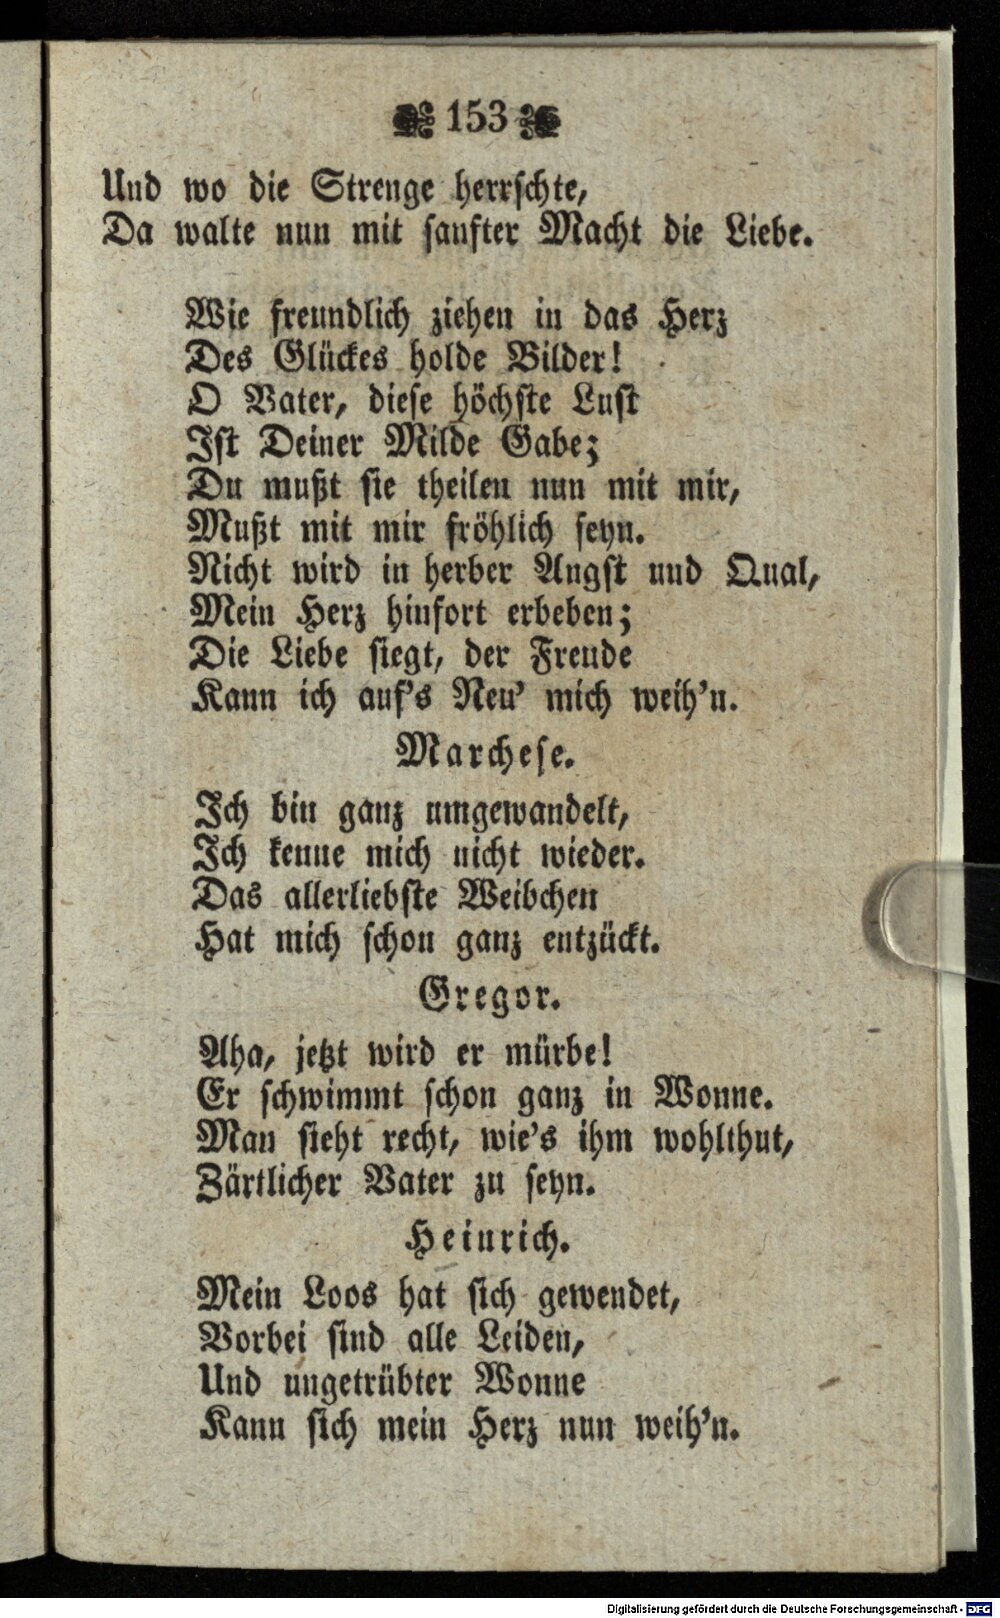 153
Und wo die Strenge herrschte,
Da walte nun mit sanfter Macht die Liebe.
Wie freundlich ziehen in das Herz
Des Glückes holde Bilder!
O Vater, diese höchste Lust
Ist Deiner Milde Gabe;
Du mußt sie theilen nun mit mir,
Mußt mit mir fröhlich seyn.
Nicht wird in herber Angst und Qual,
Mein Herz hinfort erbeben;
Die Liebe siegt, der Freude
Kann ich auf's Neu' mich weih'n.
Marchese.
Ich bin ganz umgewandelt,
Ich kenne mich nicht wieder.
Das allerliebste Weibchen
Hat mich schon ganz entzückt.
Gregor.
Aha, jetzt wird er mürbe!
Er schwimmt schon ganz in Wonne.
Man sieht recht, wie's ihm wohlthut,
Zärtlicher Vater zu seyn.
Heinrich.
Mein Loos hat sich gewendet,
Vorbei sind alle Leiden,
Und ungetrübter Wonne
Kann sich mein Herz nun weih'n.
Digitalisierung gefördert durch die Deutsche Forschungsgemeinschaft - DFG